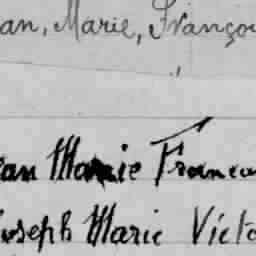 an, Marie, Françou
ean Marie Francou
Joseph Marie Victo